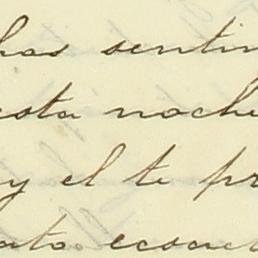 has sentim
esta noche
y el te pr
ato exact